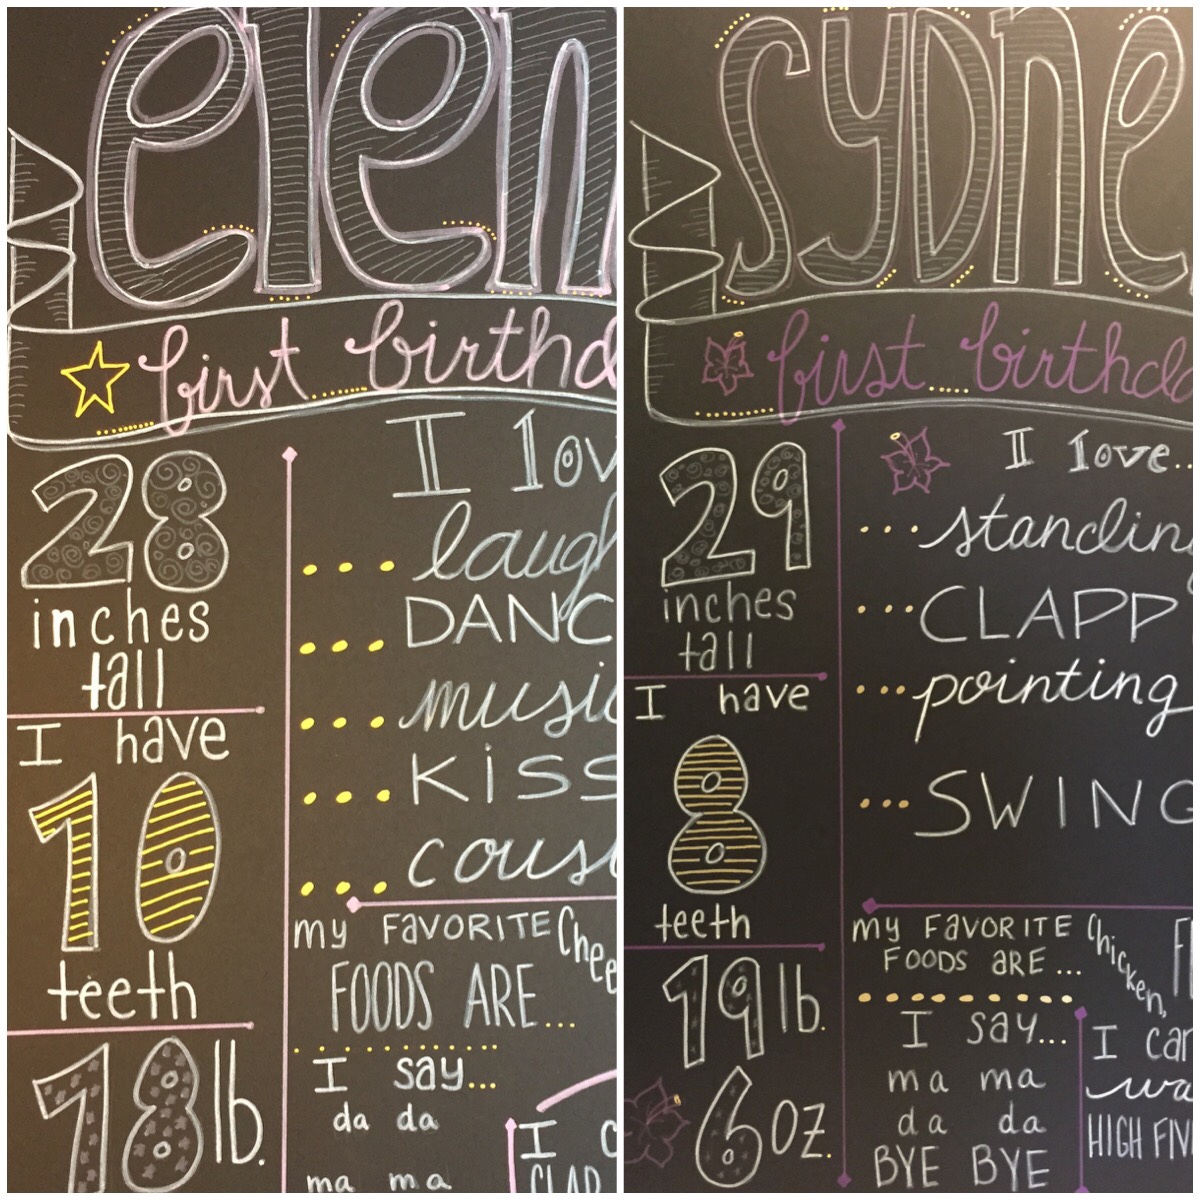 elen
first birthd
28
inches
tall
I have
10
teeth
18 lb.
I lov
... laugh
... DANC
... music
... KISS
... cousi
my FAVORITE
FOODS ARE...
Chee
I say...
da da
ma ma
I C
CLAP
sydne
first birthda
29
inches
tall
I have
8
teeth
19 lb.
6 oz.
I love...
... standing
... CLAPP
... pointing
... SWING
my FAVORITE
FOODS ARE...
chicken,
F
I say...
ma ma
da da
BYE BYE
I can
wa
HIGH FIV